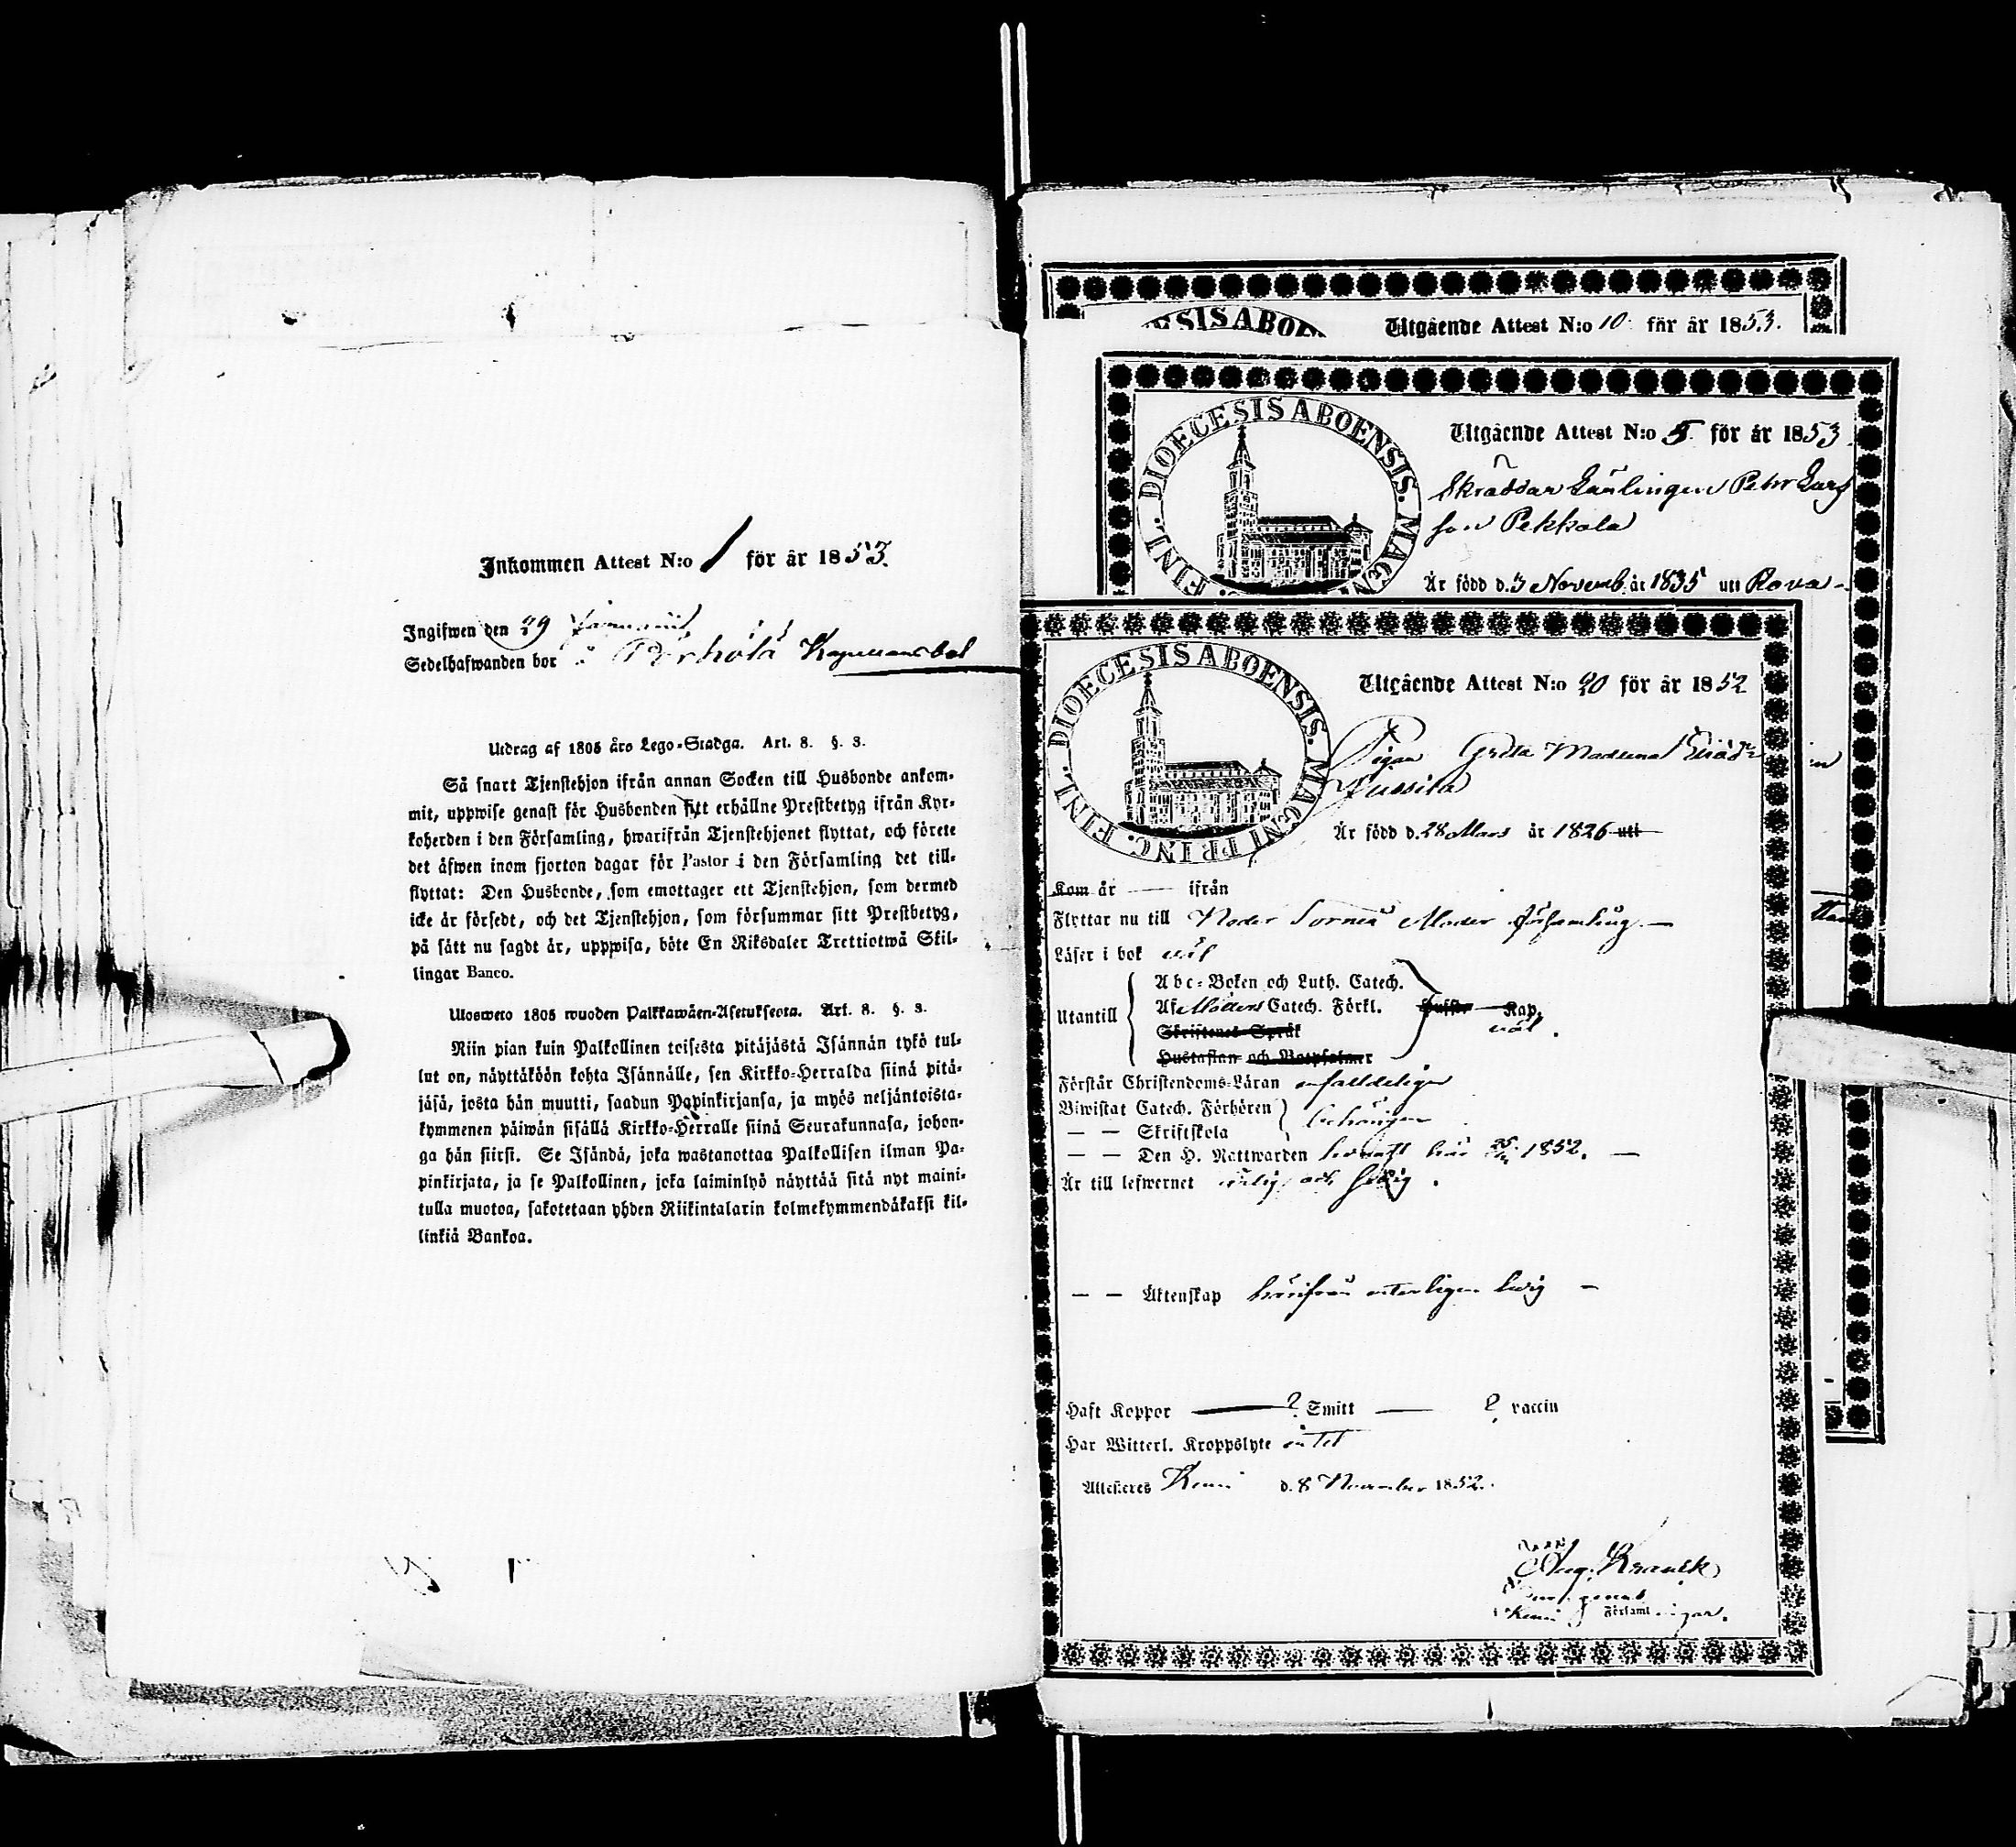 Inkommen Attest N:o 1 för år 1853.
Ingifwen den 29 Januarii
Sedelhafwanden bor å Pörhölä
Utdrag af 1805 års Lego-Stadga. Art. 8. §. 3.
Så snart Tjenstehjon ifrån annan Socken till Husbonde ankom-
mit, uppwise genast för Husbonden sitt erhållne Prestbetyg ifrån Kyr-
koherden i den Församling, hwarifrån Tjenstehjonet flyttat, och förete
det äfwen inom fjorton dagar för Pastor i den Församling det till-
flyttat: Den Husbonde, som emottager ett Tjenstehjon, som dermed
icke är försedt, och det Tjenstehjon, som försummar sitt Prestbetyg,
på sätt nu sagdt är, uppwisa, böte En Riksdaler Trettiotwå Skil-
lingar Banco.
Ulosweto 1805 wuoden Palkkawäen-Asetuksesta. Art. 8. §. 3.
Niin pian kuin Palkollinen toisesta pitäjästä Isännän tykö tul-
lut on, näyttäköön kohta Isännälle, sen Kirkko-Herralda siinä pitä-
jäsä, josta hän muutti, saadun Papinkirjansa, ja myös neljäntoista-
kymmenen päiwän sisällä Kirkko-Herralle siinä Seurakunnasa, johon-
ga hän siirsi. Se Isändä, joka wastanottaa Palkollisen ilman Pa-
pinkirjata, ja se Palkollinen, joka laiminlyö näyttää sitä nyt maini-
tulla muotoa, sakotetaan yhden Riikintalarin kolmekymmendäkaksi kil-
linkiä Bankoa.
SIS ABOE
Utgående Attest N:o 10 för år 1853.
DIOECESIS ABOENSIS. MAGNI FINL.
Utgående Attest N:o 5. för år 1853
Skräddar Lärlingen Petr Lars
son Pekkala
Är född d. 3 Novemb. år 1835 uti Rova-
DIOECESIS ABOENSIS. MAGNI PRINC. FINL.
Utgående Attest N:o 20 för år 1852
Pigan Greta Madlena
Jussila
Är född d. 28 Mars år 1826 uti
Kom år — ifrån
Flyttar nu till Neder Torneå Moder församling.—
Läser i bok väl
Utantill
Abc-Boken och Luth. Catech.
Af Möllers Catech. Förkl. Kap.
väl.
Skriftenes Språk
Hustaflan och Botpsalmer
Förstår Christendoms-Läran enfalldeligen
Biwistat Catech. Förhören
— — Skriftskola
behörigen
— — Den H. Nattwarden begått här 1852. —
Är till lefwernet ärlig och sedig.
— — Äktenskap härifrån veterligen ledig —
Haft Koppor — ? Smitt — ? vaccin
Har Witterl. Kroppslyte intet
Attesteres Kemi d. 8 November 1852.
Aug. Kranck
Kemi Församlingar.